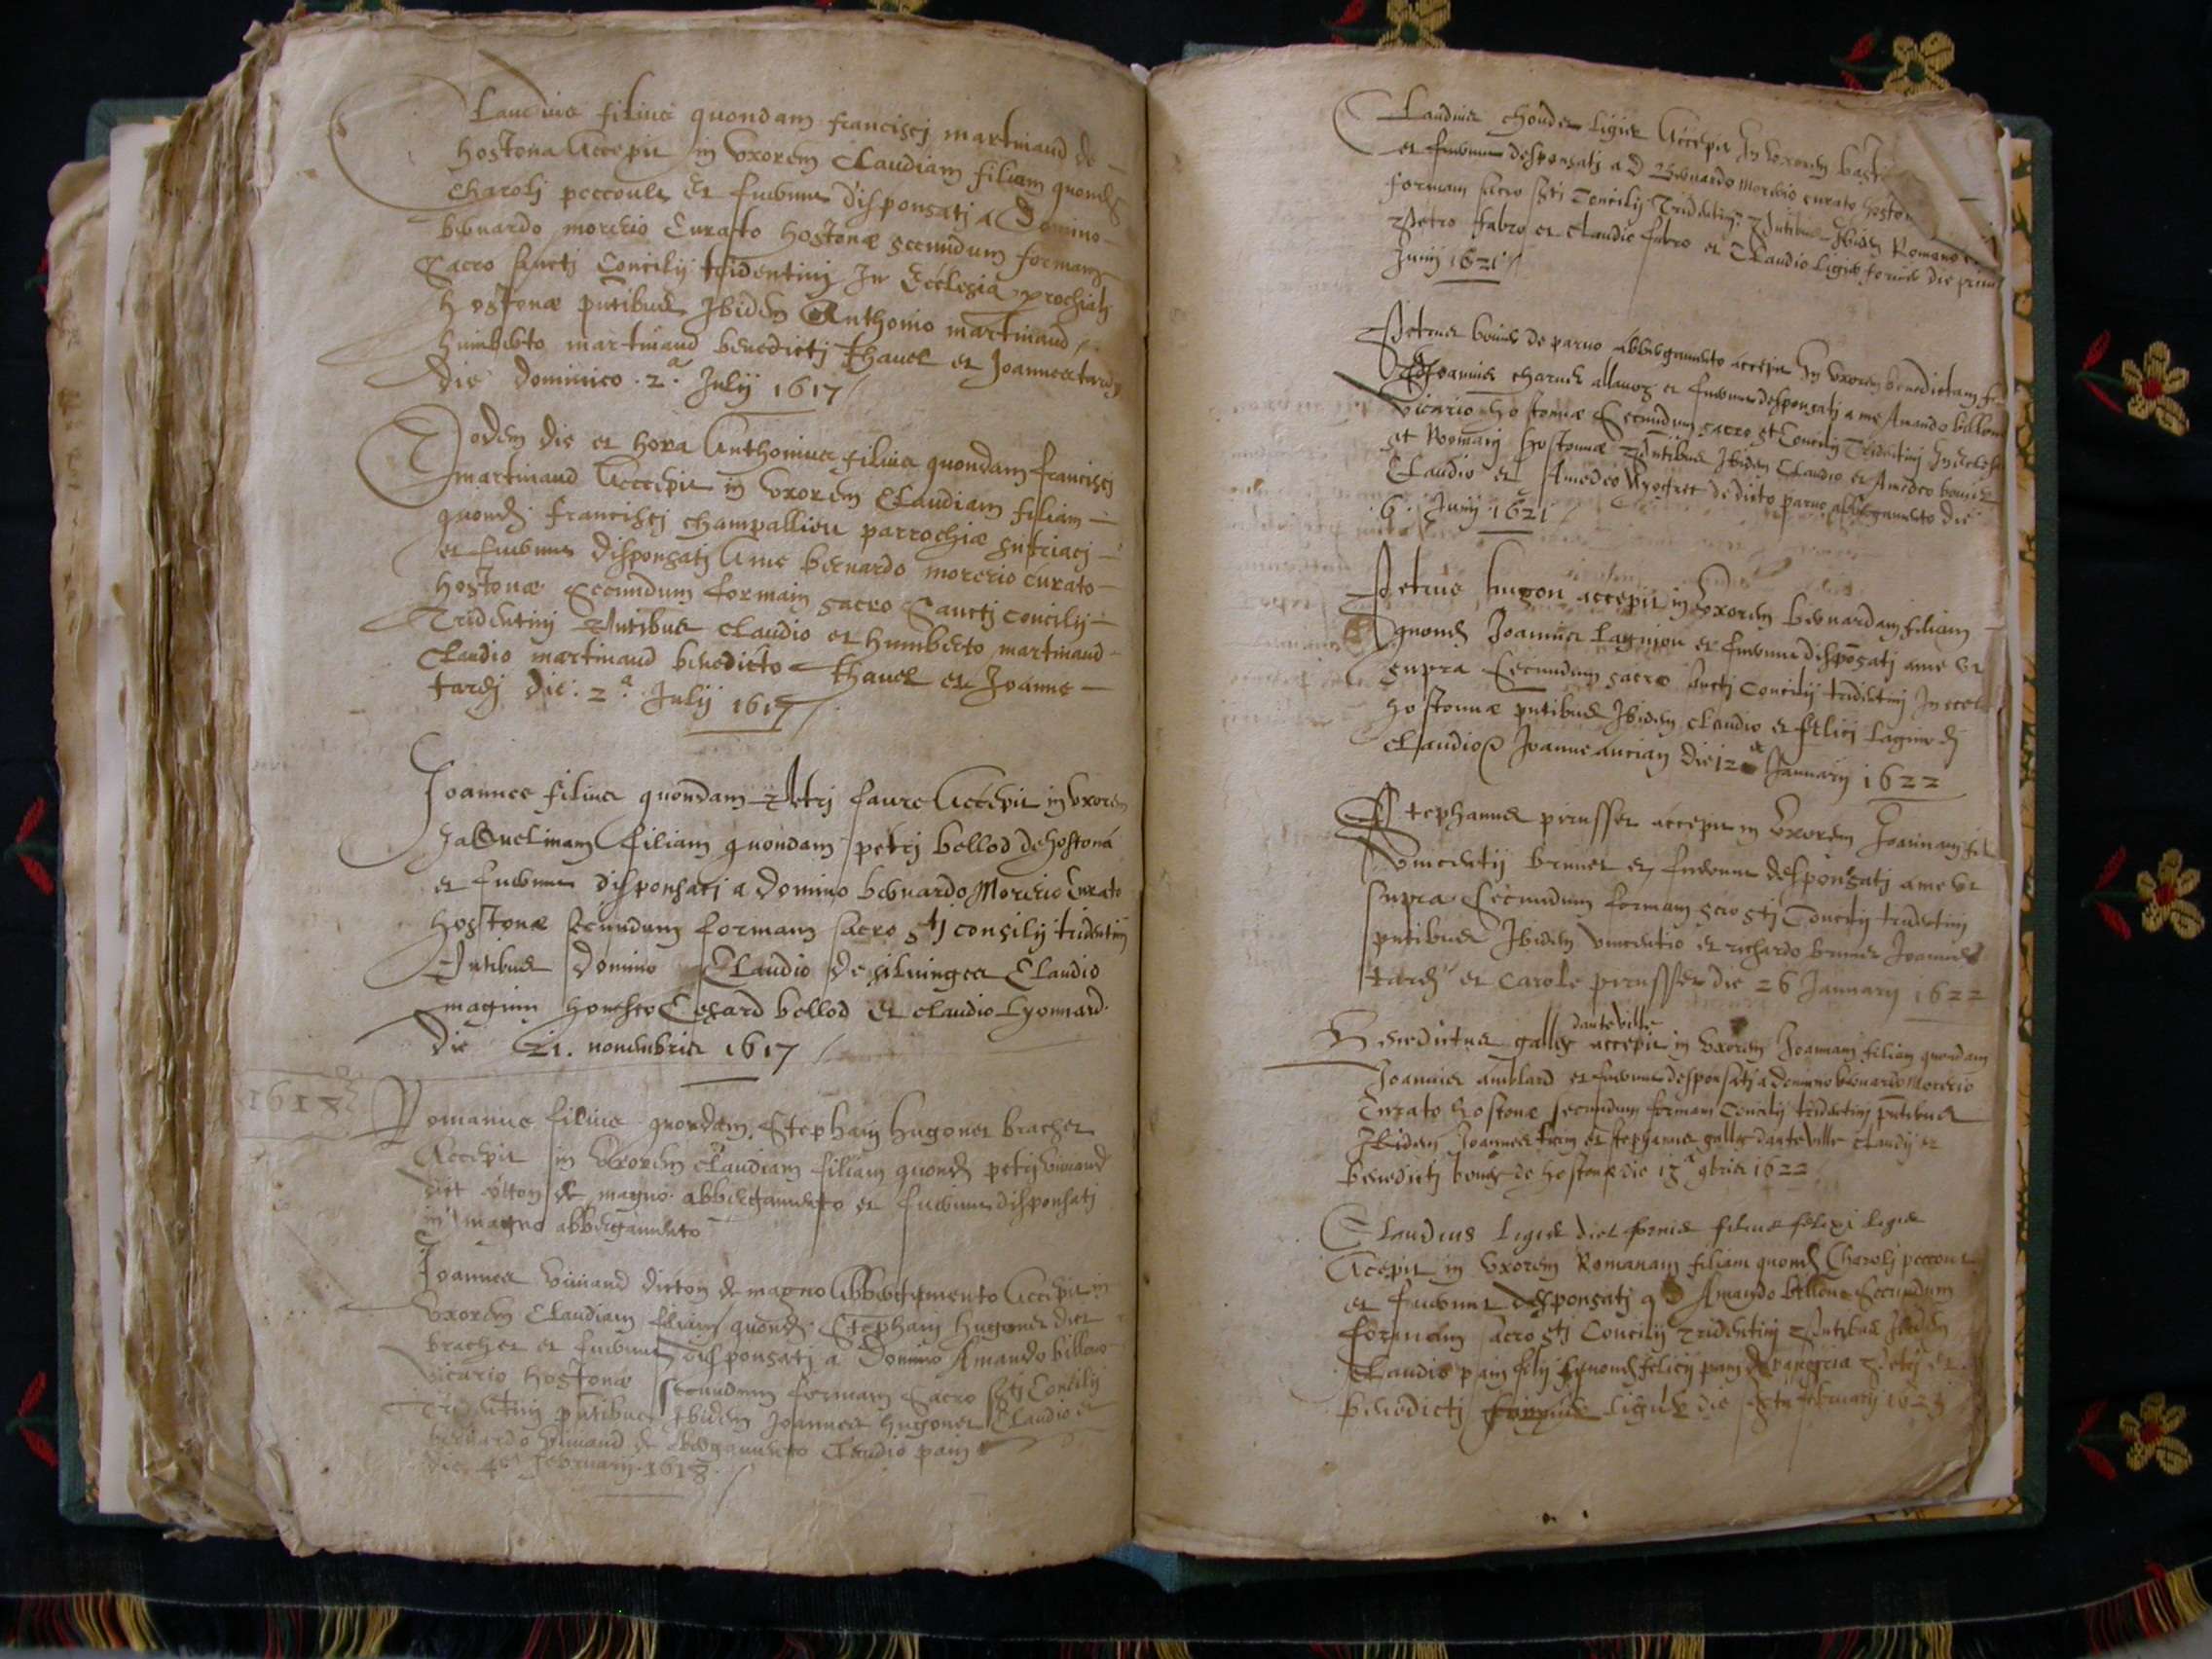 Claudius filius quondam francisci martinaud de
hostona Accepit in Uxorem Claudiam filiam quond
Charoli peccoult et fuerunt disponsati a Domino
bernardo morerio Curato hostonæ secundum formam
Sacro sancti Concilij tridentini In Ecclesia prochiali
Hostonæ pntibus Ibidem Anthonio martinaud
humberto martinaud benedicti thavel et Joannes tardy
die dominico 2.a Julij 1617
Eodem die et hora Anthonius filius quondam francisci
martinaud Accepit in Uxorem Claudiam filiam
quond francisci champallieu parrochiæ sutriaci
et fuerunt disponsati A me bernardo morerio curato
hostonæ Secundum formam sacro Sancti Concilij
Tridentini Pntibus claudio et humberto martinaud
Claudio martinaud benedicto thavel et Joanne
tardj die 2.a Julij 1617
Joannes filius quondam Petri faure Accepit in Uxorem
Jaquelinam filiam quondam petri bellod de hostona
et fuerunt disponsati a Domino bernardo Morerio Curato
hostonæ secundum formam sacro stj consilij tridentinj
Pntibus Domino Claudio de silvinges Claudio
magnin honesto Cesard bellod et claudio Lyonnard
die 21. novembris 1617
1618
Romanus filius quondam Stephani hugonet bracher
Accepit in Uxorem claudiam filiam quond petri vuinand
dict otton de magno abbergamento et fuerunt disponsati
in magno abbergamento
Joannes vuinand dicton de magno Abbergemento Accepit in
Uxorem Claudiam filiam quond Stephani hugonet dict
bracher et fuerunt disponsati a Domino Amando billion
vicario hostonæ secundum formam Sacro scti Concilij
Tridentini pntibus Ibidem Joannes hugonet Claudio et
bernardo vuinand de abergamento Claudio pain
die 4a february 1618
Claudius chonder ligier Accepit In Uxorem
et fuerunt desponsati a D Bernardo Morerio curato
formam sacro scti Concilij Tridentini Pntibus Ibidem Romano
Petro fabro et claudio fabro et Claudio ligier die
Junij 1621
Petrus bouier de parvo abbergamento accepit In Uxorem benedictam
Joannis charvet et fuerunt desponsati a me Amando
vicario hostonnæ Secundum sacro st Concilij Tridentini In
st Romani hostonnæ Pntibus Ibidem Claudio et Amedeo bouier
Claudio et Amedeo de dicto parvo abbergamento die
6. Junij 1621
Petrus hugon accepit in Uxorem bernardam filiam
quond Joannis lagnion et fuerunt dispōsati a me ut
supra Secundum sacro sancti Concilij tridentini In
hostonnæ pntibus Ibidem claudio et felici
claudio Joanne ancian die 12 January 1622
Stephanus pirusset accepit in Uxorem Joannam
vincentij brunet et fuerunt desponsati a me ut
supra Secundum formam scro stj Concilij tridentini
pntibus Ibidem vincentio et richardo brunet Joannes
tardj et Carole pirusset die 26 January 1622
danteville
Benedictus gallet accepit in Uxorem Joannam filiam quondam
Joannis amblard et fuerunt desponsati a domino bernardo Morerio
Curato hostonæ secundum formam Concilij tridentini pntibus
Ibidem Joannes et stephanus gallet danteville claudij et
benedicti de hostona die 1622
Claudius Ligier dict filius felixi ligier
Accepit in Uxorem Romanam filiam quond Charoli peccoult
et fuerunt desponsati a D Amando billion Secundum
formam sacro stj Concilij Tridentini Pntibus Ibidem
Claudio pain filij quond felicij pain Petrj et
benedicti ligier die february 1623